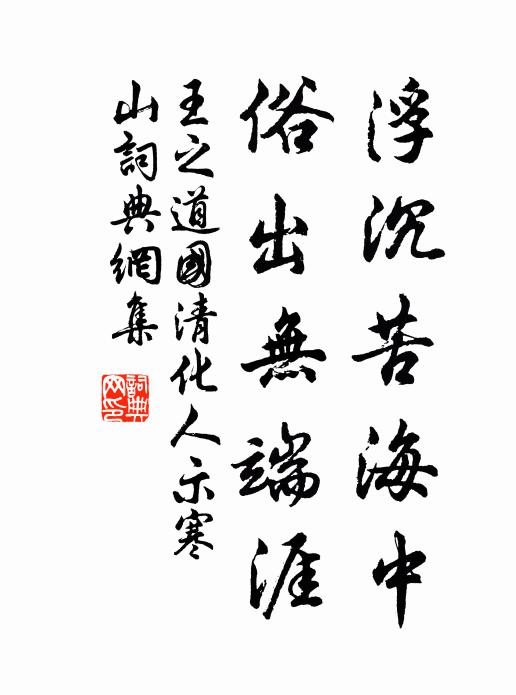 浮沉苦海中
俗出無端涯
王之道國清化人示寒
山詞典網集
詞典
网印